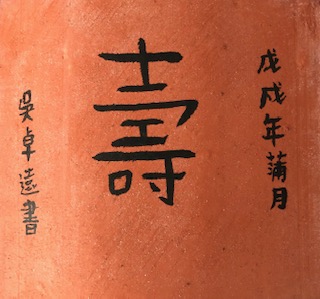 戊戌年蒲月
壽
吳卓遠書